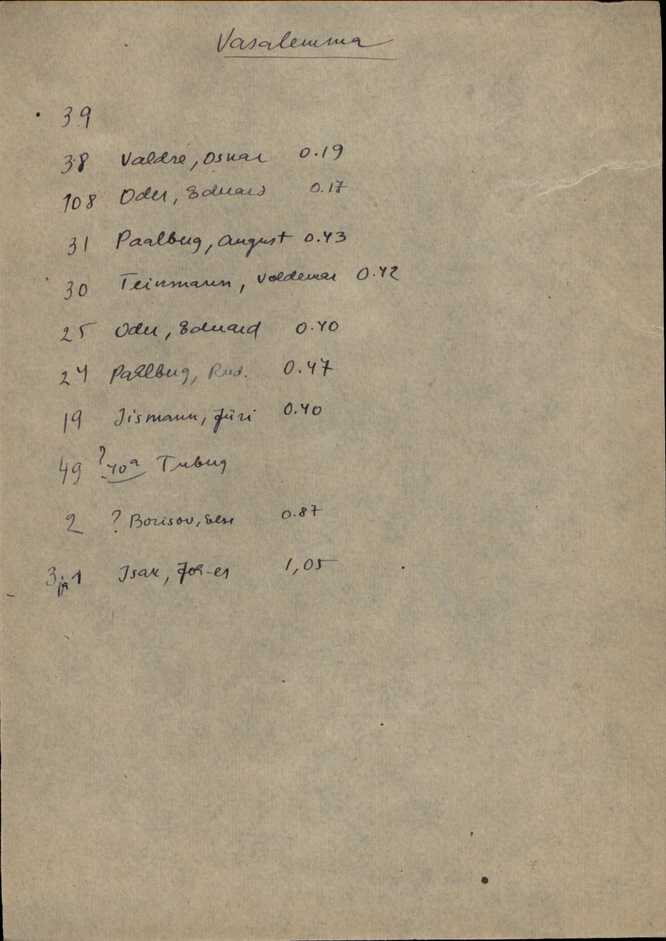 Vasalemma
39
38 Valdre, Oskar 0.19
108 Oder, Eduard 0.17
31 Paalberg, August 0.43
30 Teinmann, Voldemar 0.42
25 Oder, Eduard 0.40
24 Paalberg, Rud. 0.47
19 Jismann, Jüri 0.40
49 ? 40a
2 ? Borisov, 0.87
3 ja 1 Isak, Joh-es 1,05